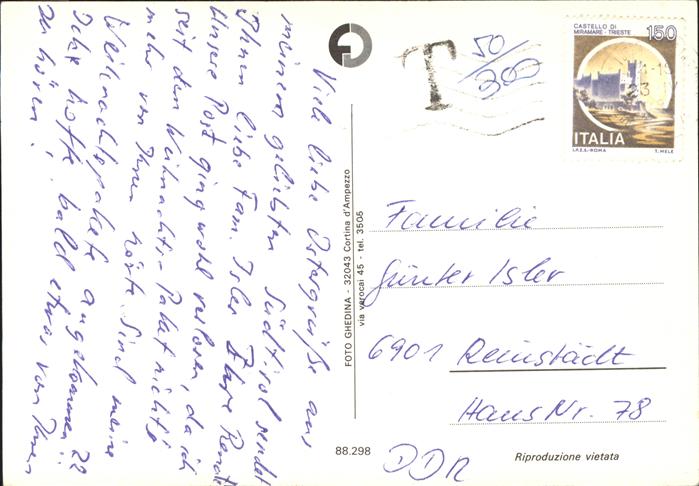 Viele liebe Ostergrüße aus
meinem geliebten Südtirol sendet
Ihnen liebe Fam. Isler Ihre Renate
Unsere Post ging wohl verloren, da ich
seit dem Weihnachts-Paket nichts
mehr von Ihnen hörte. Sind meine
Weihnachtspakete angekommen? 2?
Ich hoffe bald etwas von Ihnen
zu hören!
T
50/300
CASTELLO DI
MIRAMARE - TRIESTE
150
ITALIA
I.P.Z.S.-ROMA
T. MELE
Familie
Günter Isler
6901 Reinstädt
Haus Nr. 78
DDR
FOTO GHEDINA - 32043 Cortina d'Ampezzo
via varocai 45 - tel. 3505
88.298
Riproduzione vietata